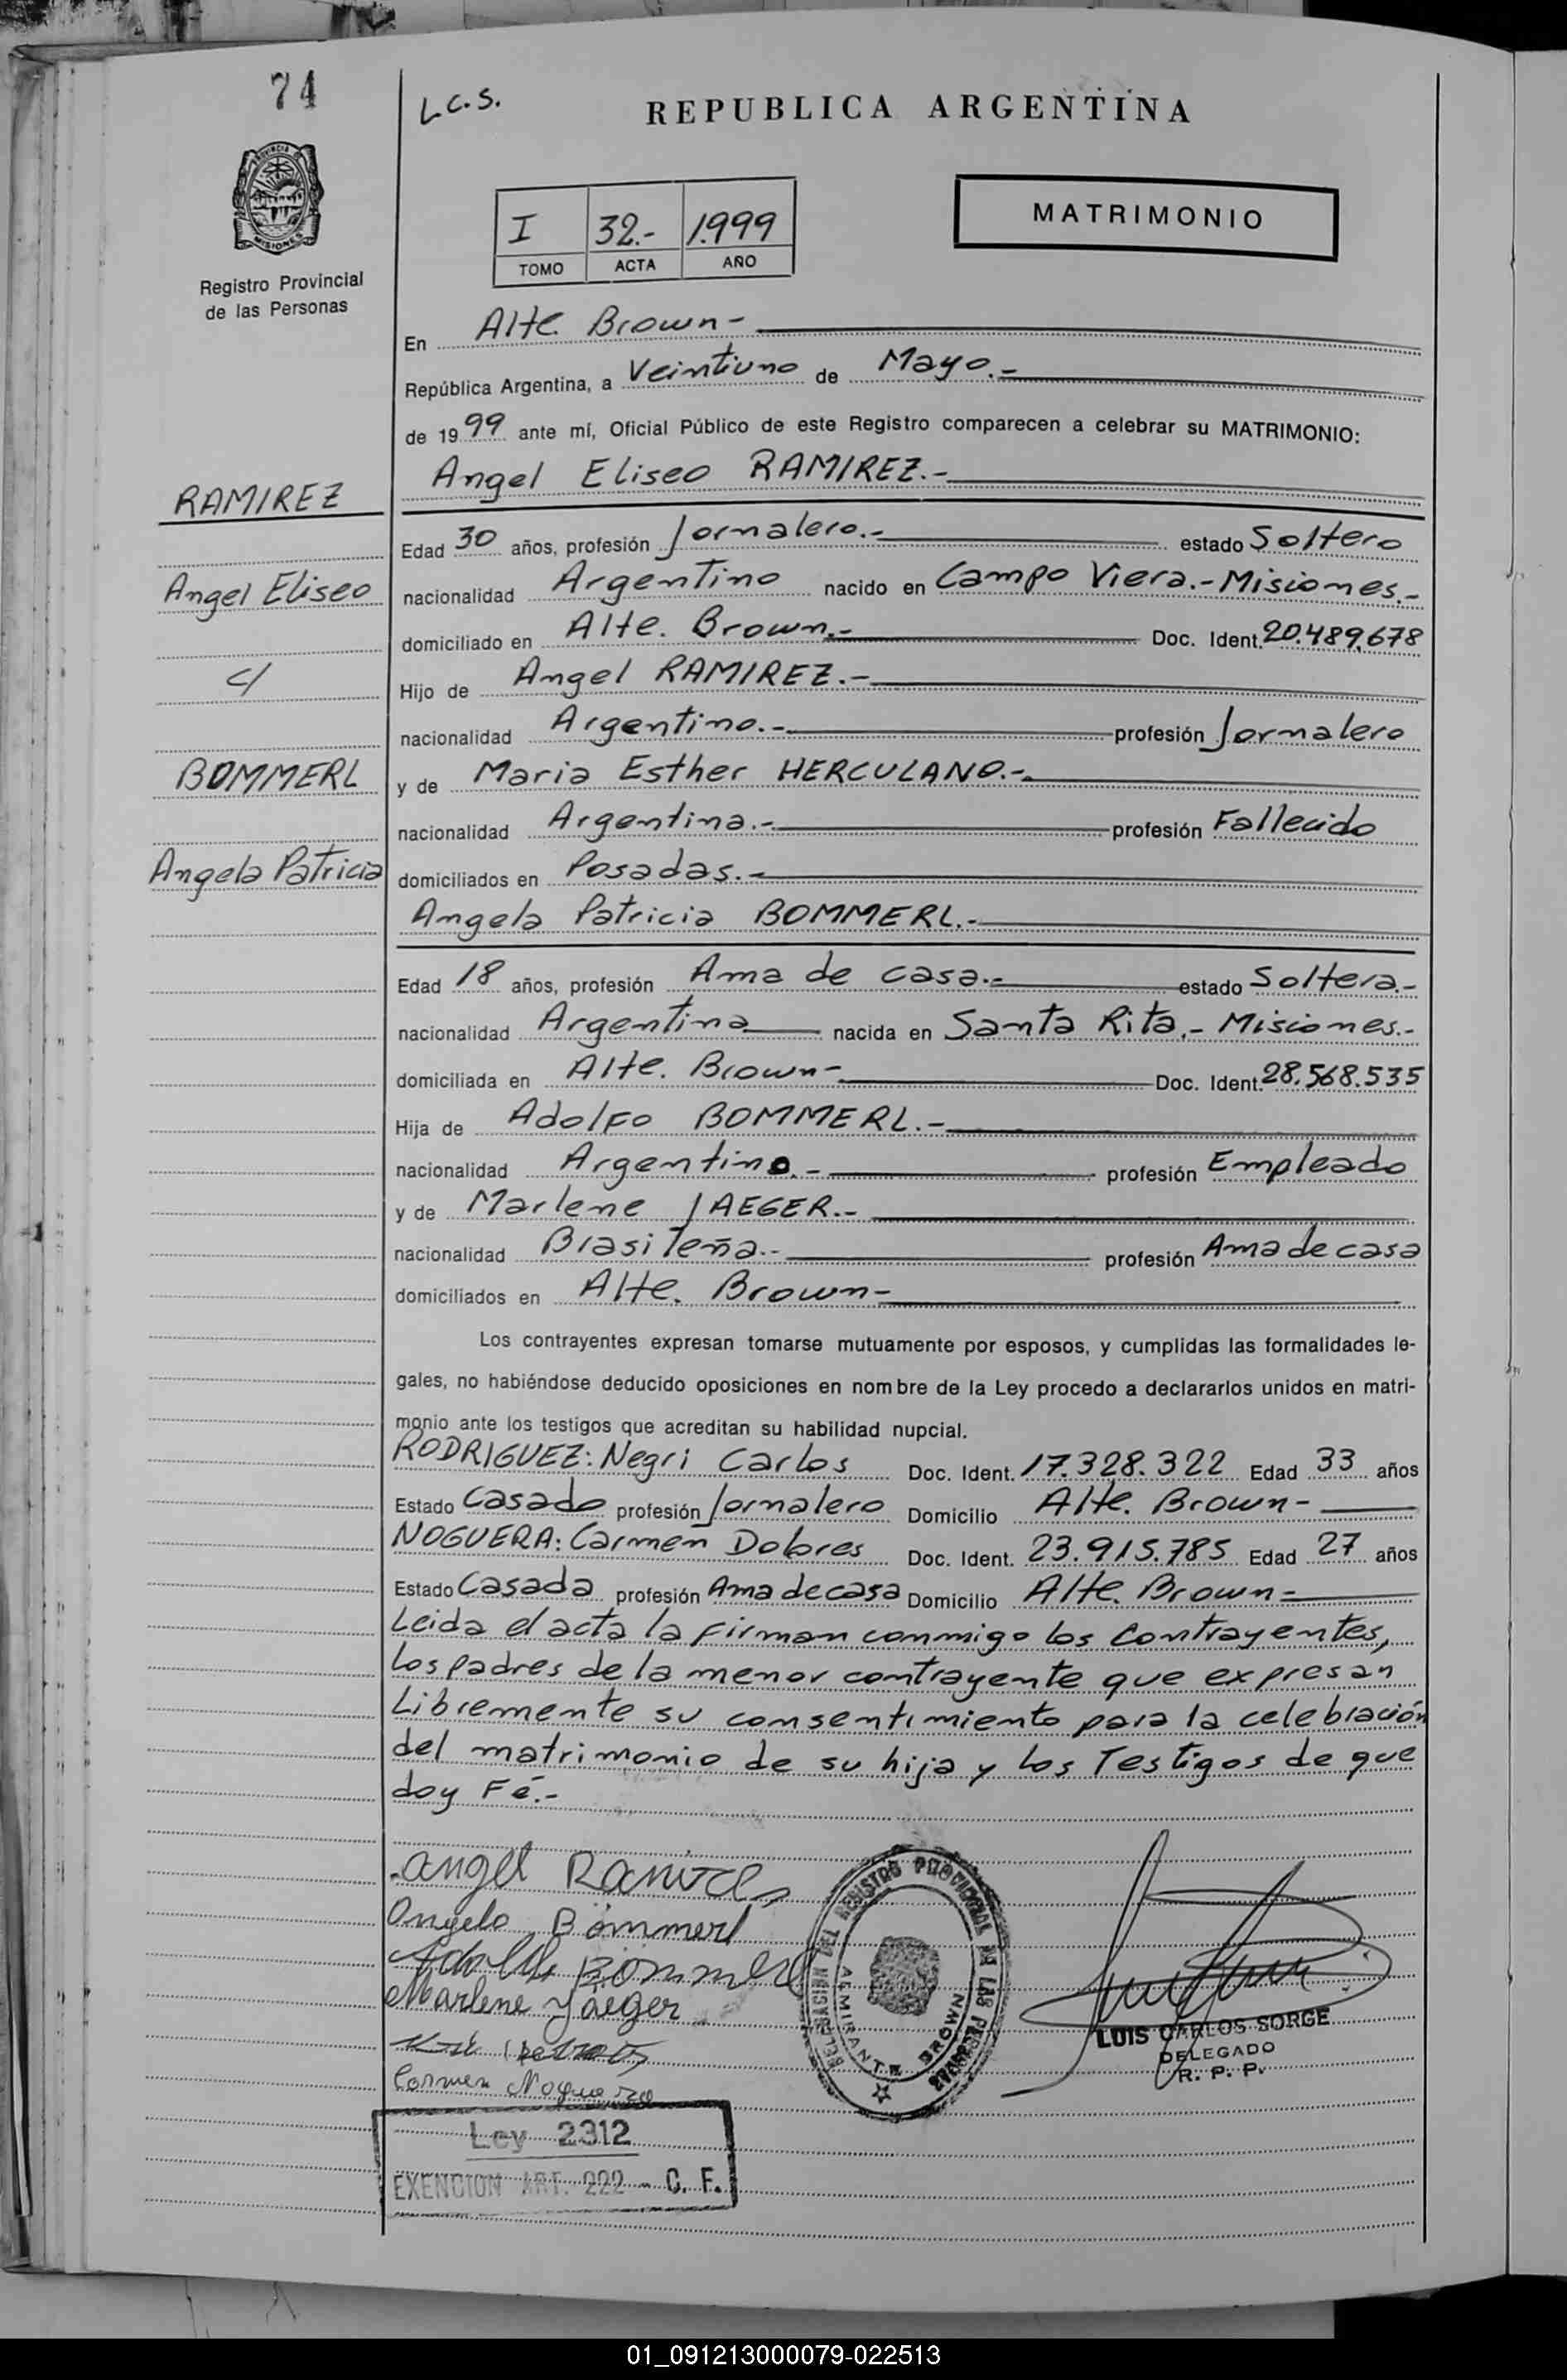 74
L.C.S.
REPUBLICA ARGENTINA
PROVINCIA
MISIONES
Registro Provincial
de las Personas
I 32.- 1.999
TOMO ACTA AÑO
MATRIMONIO
En Alte. Brown-
República Argentina, a Veintiuno de Mayo.-
de 1999 ante mí, Oficial Público de este Registro comparecen a celebrar su MATRIMONIO:
Angel Eliseo RAMIREZ.-
RAMIREZ
Edad 30 años, profesión Jornalero.- estado Soltero
Angel Eliseo
nacionalidad Argentino nacido en Campo Viera.-Misiones.-
domiciliado en Alte. Brown.- Doc. Ident. 20.489.678
c/
Hijo de Angel RAMIREZ.-
nacionalidad Argentino.- profesión Jornalero
BOMMERL
y de Maria Esther HERCULANO.-
nacionalidad Argentina.- profesión Fallecido
Angela Patricia
domiciliados en Posadas.-
Angela Patricia BOMMERL.-
Edad 18 años, profesión Ama de casa.- estado Soltera.-
nacionalidad Argentina nacida en Santa Rita.- Misiones.-
domiciliada en Alte. Brown- Doc. Ident. 28.568.535
Hija de Adolfo BOMMERL.-
nacionalidad Argentino.- profesión Empleado
y de Marlene JAEGER.-
nacionalidad Brasileña.- profesión Ama de casa
domiciliados en Alte. Brown-
Los contrayentes expresan tomarse mutuamente por esposos, y cumplidas las formalidades le-
gales, no habiéndose deducido oposiciones en nombre de la Ley procedo a declararlos unidos en matri-
monio ante los testigos que acreditan su habilidad nupcial.
RODRIGUEZ: Negri Carlos Doc. Ident. 17.328.322 Edad 33 años
Estado Casado profesión Jornalero Domicilio Alte. Brown-
NOGUERA: Carmen Dolores Doc. Ident. 23.915.785 Edad 27 años
Estado Casada profesión Ama de casa Domicilio Alte. Brown-
Leida el acta la firman conmigo los Contrayentes,
los padres de la menor contrayente que expresan
Libremente su consentimiento para la celebración
del matrimonio de su hija y los Testigos de que
doy Fé.-
Angel Ramirez
Angela Bommerl
Adolfo Bommerl
Marlene Jaeger
Carmen Noguera
DELEGACION DEL REGISTRO PROVINCIAL DE LAS PERSONAS
ALMIRANTE BROWN
LUIS CARLOS SORGE
DELEGADO
R. P. P.
Ley 2312
EXENCION ART. 222 - C. F.
01_091213000079-022513